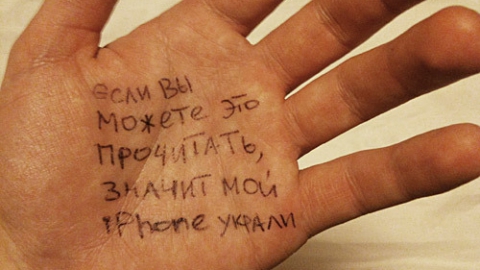 если вы
можете это
прочитать,
значит мой
iPhone украли